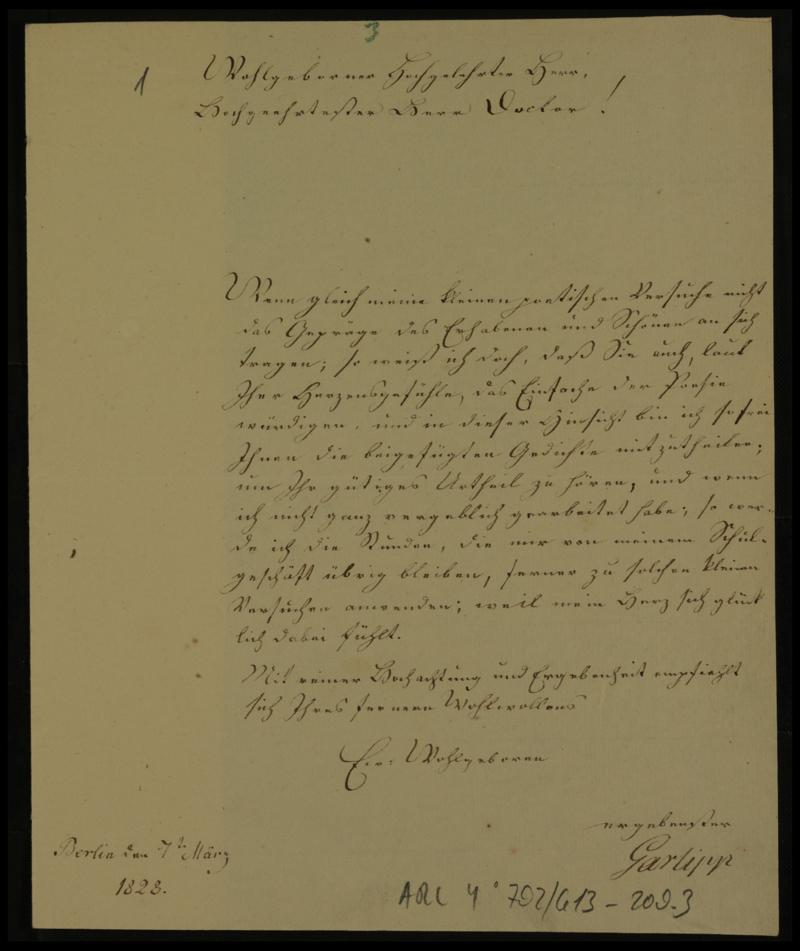 3
1
Wohlgeborner Hochgelehrter Herr,
Hochgeehrtester Herr Doctor!
Wenn gleich meine kleinen poetischen Versuche nicht
das Gepräge des Erhabenen und Schönen an sich
tragen; so weiß ich doch, daß Sie auch, laut
Ihrer Herzensgefühle, das Einfache der Poesie
würdigen, und in dieser Hinsicht bin ich so frei
Ihnen die beigefügten Gedichte mitzutheilen;
um Ihr gütiges Urtheil zu hören, und wenn
ich nicht ganz vergeblich gearbeitet habe; so wer-
de ich die Stunden, die mir von meinem Schul-
geschäft übrig bleiben, ferner zu solchen kleinen
Versuchen anwenden; weil mein Herz sich glück
lich dabei fühlt.
Mit reiner Hochachtung und Ergebenheit empfiehlt
sich Ihres fernern Wohlwollens
Ew: Wohlgeboren
ergebenster
Garlipp
Berlin den 7th März
1823.
ARC 4° 792/G13-209-3